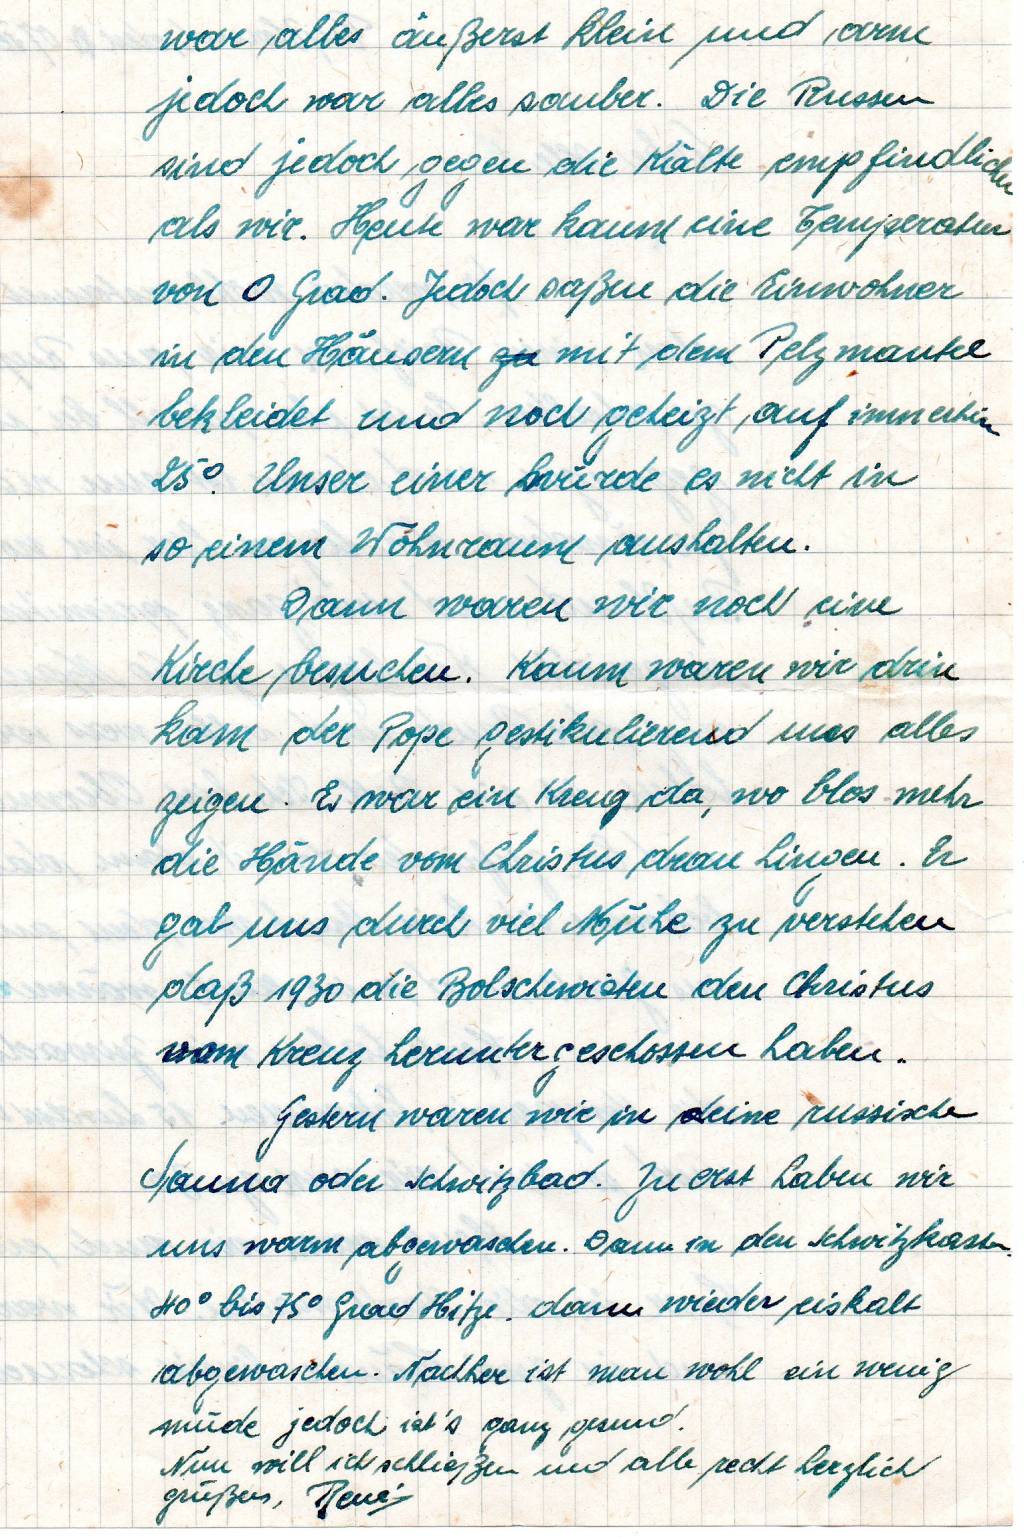 war alles äußerst klein und arm
jedoch war alles sauber. Die Russen
sind jedoch gegen die Kälte empfindlicher
als wir. Heute war kaum eine Temperatur
von 0 Grad. Jedoch saßen die Einwohner
in den Häusern zu mit dem Pelzmantel
bekleidet und noch geheizt auf immerhin
25°. Unser einer würde es nicht in
so einem Wohnraum aushalten.
Dann waren wir noch eine
Kirche besuchen. Kaum waren wir drin
kam der Pope gestikulierend uns alles
zeigen. Es war ein Kreuz da, wo blos mehr
die Hände vom Christus dran hingen. Er
gab uns durch viel Mühe zu verstehen
daß 1930 die Bolschewisten den Christus
vom Kreuz heruntergeschossen haben.
Gestern waren wir in eine russische
Sauna oder Schwitzbad. Zuerst haben wir
uns warm abgewaschen. Dann in den Schwitzkasten.
40° bis 75° Grad Hitze. dann wieder eiskalt
abgewaschen. Nachher ist man wohl ein wenig
müde jedoch ist's ganz gesund.
Nun will ich schließen und alle recht herzlich
grüßen, René